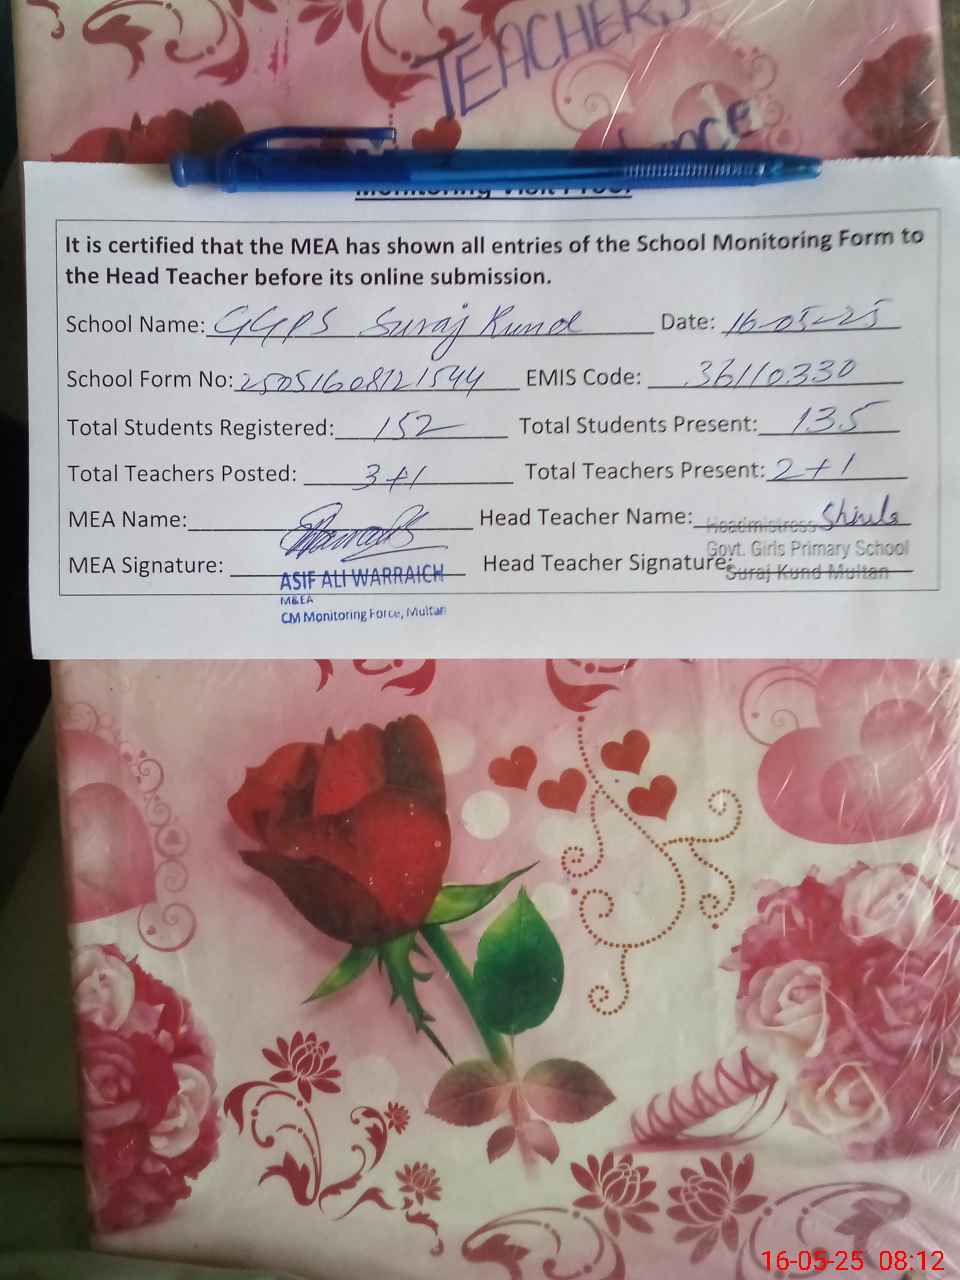 TEACHERS
Monitoring Visit Proof
It is certified that the MEA has shown all entries of the School Monitoring Form to
the Head Teacher before its online submission.
School Name: GGPS Suraj Kund Date: 16-05-25
School Form No: 25051608121544 EMIS Code: 36110330
Total Students Registered: 152 Total Students Present: 135
Total Teachers Posted: 3+1 Total Teachers Present: 2+1
MEA Name: Head Teacher Name:
Headmistress
Govt. Girls Primary School
MEA Signature: Head Teacher Signature:
Suraj Kund Multan
ASIF ALI WARRAICH
M&EA
CM Monitoring Force, Multan
16-05-25 08:12